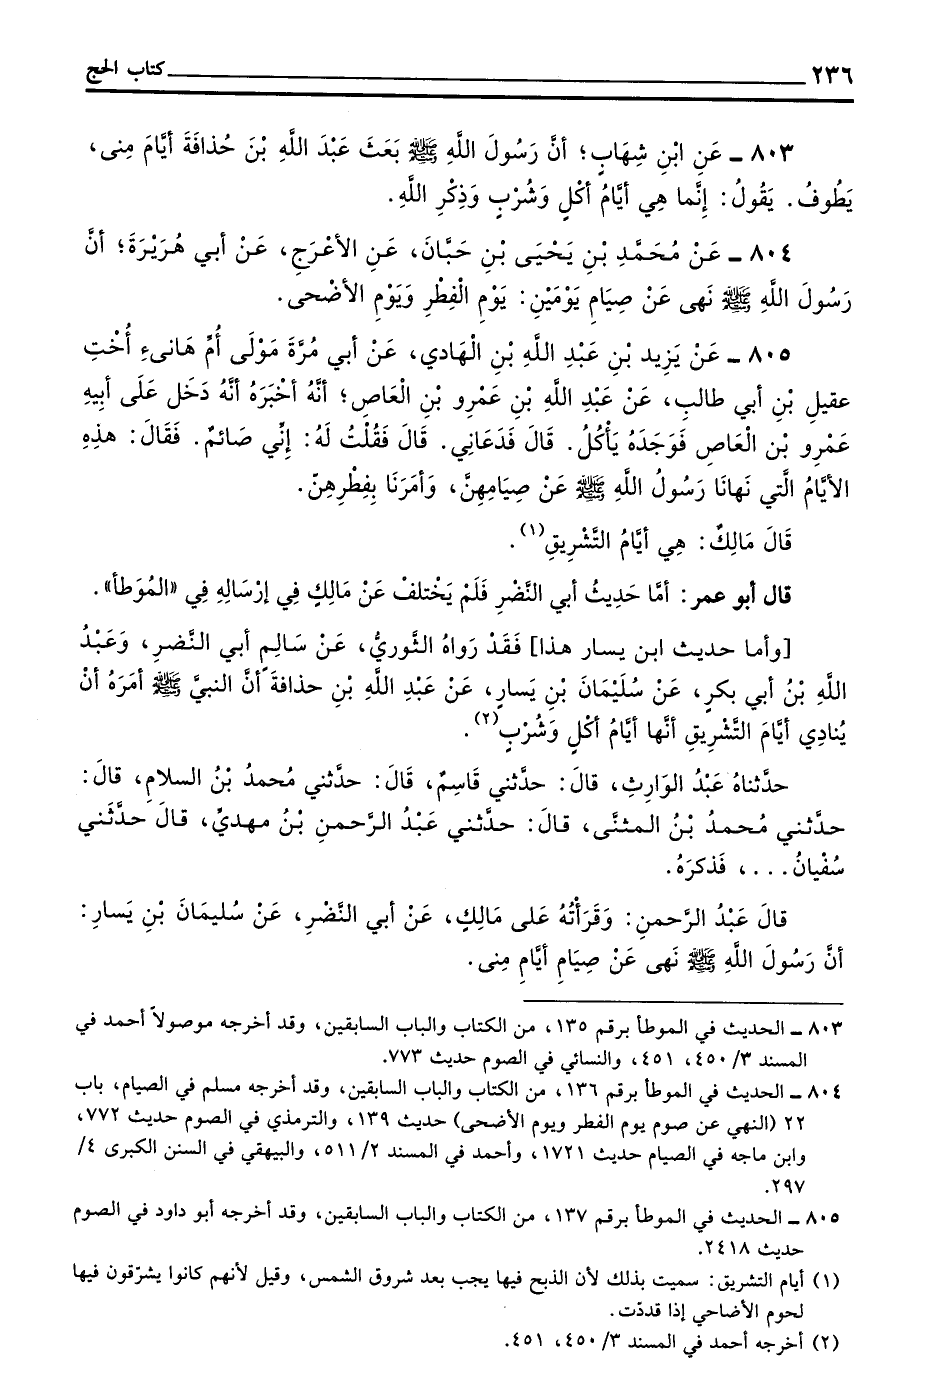 ٢٣٦ كتاب الحج
٨٠٣ ـ عَنِ ابْنِ شِهَابٍ؛ أنَّ رَسُولَ اللَّهِ ﷺ بَعَثَ عَبْدَ اللَّهِ بْنَ حُذافَةَ أيَّامَ مِنى،
يَطُوفُ. يَقُولُ: إنَّما هِي أيَّامُ أكْلٍ وَشُرْبٍ وَذِكْرِ اللَّهِ.
٨٠٤ ـ عَنْ مُحَمَّدِ بْنِ يَحْيَى بْنِ حَبَّانَ، عَنِ الأعْرَجِ، عَنْ أبي هُرَيْرَةَ؛ أنَّ
رَسُولَ اللَّهِ ﷺ نَهى عَنْ صِيَامِ يَوْمَيْنِ: يَوْمِ الْفِطْرِ وَيَوْمِ الأضْحى.
٨٠٥ ـ عَنْ يَزِيد بْنِ عَبْدِ اللَّهِ بْنِ الْهَادي، عَنْ أبي مُرَّةَ مَوْلَى أُمِّ هَانىءِ أُخْتِ
عقيلِ بْنِ أبي طالبِ، عَنْ عَبْدِ اللَّهِ بْنِ عَمْرِو بْنِ الْعَاصِ؛ أنَّهُ أخْبَرَهُ أنَّهُ دَخَل عَلَى أبِيهِ
عَمْرِو بْنِ الْعَاصِ فَوَجَدَهُ يَأْكُلُ. قَالَ فَدَعَانِي. قَالَ فَقُلْتُ لَهُ: إنِّي صَائمٌ. فَقَالَ: هذِهِ
الأيَّامُ الَّتي نَهانَا رَسُولُ اللَّهِ ﷺ عَنْ صِيَامِهِنَّ، وَأمَرَنَا بِفِطْرِهِنّ.
قَالَ مَالِكٌ: هِي أيَّامُ التَّشْرِيقِ(١).
قال أبو عمر: أمَّا حَدِيثُ أبي النَّضْرِ فَلَمْ يَخْتلفْ عَنْ مَالِكٍ فِي إرْسَالِهِ فِي «المُوَطأ».
[وأما حديث ابن يسار هذا] فَقَدْ رَواهُ الثَّوريُّ، عَنْ سَالِمِ أبي النَّضرِ، وَعَبْدُ
اللَّهِ بْنُ أبي بكرٍ، عَنْ سُلَيْمَانَ بْنِ يَسارٍ، عَنْ عَبْدِ اللَّهِ بْنِ حذافةَ أنَّ النبيَّ ﷺ أمَرَهُ أنْ
يُنادِي أيَّامَ التَّشْرِيقِ أنَّها أيَّامُ أكْلٍ وَشُرْبٍ(٢).
حدَّثناهُ عَبْدُ الوَارِثِ، قالَ: حدَّثني قَاسِمٌ، قَالَ: حدَّثني مُحمدُ بْنُ السلامِ، قالَ:
حدَّثني مُحمدُ بْنُ المثنَّى، قالَ: حدَّثني عَبْدُ الرَّحمنِ بْنُ مهديٍّ، قالَ حدَّثَني
سُفْيانُ...، فَذكرَهُ.
قالَ عَبْدُ الرَّحمنِ: وَقَرَأتُهُ عَلى مَالِكٍ، عَنْ أبي النَّضْرِ، عَنْ سُليمَانَ بْنِ يَسارٍ:
أنَّ رَسُولَ اللَّهِ ﷺ نَهى عَنْ صِيَامِ أيَّامِ مِنى.
٨٠٣ ـ الحديث في الموطأ برقم ١٣٥، من الكتاب والباب السابقين، وقد أخرجه موصولاً أحمد في
المسند ٣/ ٤٥٠، ٤٥١، والنسائي في الصوم حديث ٧٧٣.
٨٠٤ ـ الحديث في الموطأ برقم ١٣٦، من الكتاب والباب السابقين، وقد أخرجه مسلم في الصيام، باب
٢٢ (النهي عن صوم يوم الفطر ويوم الأضحى) حديث ١٣٩، والترمذي في الصوم حديث ٧٧٢،
وابن ماجه في الصيام حديث ١٧٢١، وأحمد في المسند ٢/ ٥١١، والبيهقي في السنن الكبرى ٤/
٢٩٧.
٨٠٥ ـ الحديث في الموطأ برقم ١٣٧، من الكتاب والباب السابقين، وقد أخرجه أبو داود في الصوم
حديث ٢٤١٨.
(١) أيام التشريق: سميت بذلك لأن الذبح فيها يجب بعد شروق الشمس، وقيل لأنهم كانوا يشرّقون فيها
لحوم الأضاحي إذا قددّت.
(٢) أخرجه أحمد في المسند ٣/ ٤٥٠، ٤٥١.